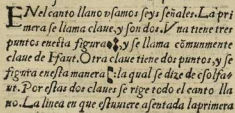 EN el canto llano vsamos seys señales. La pri
mera se llama claue, y son dos. Vna tiene tres
puntos en esta figura, y se llama cõmunmente
claue de Ffaut. Otra claue tiene dos puntos, y se
figura en esta manera: la qual se dize de csolfa-
ut. Por estas dos claues se rige todo el canto lla
no. La linea en que estuuiere asentada la primera